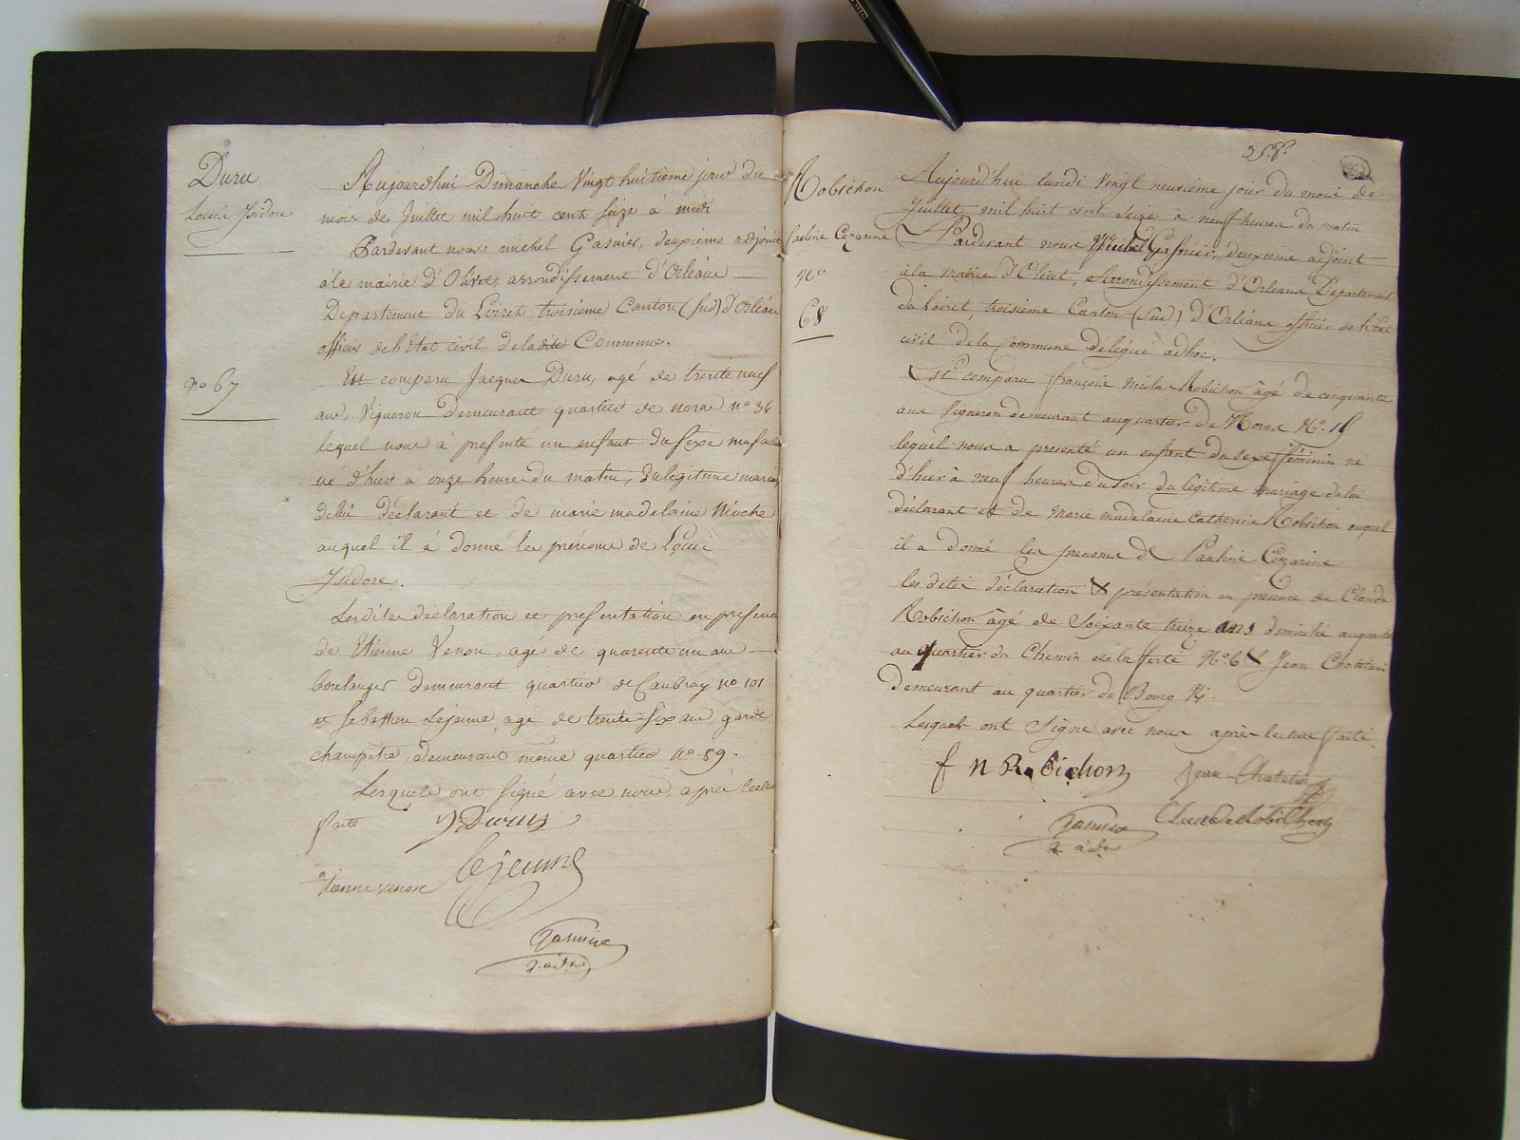 Duru
Louis Isidore
No 67
Aujourd'hui Dimanche Vingt huitieme jour du
mois de Juillet mil huit cent Seize à midi
Pardevant nous michel Gasnier, deuxieme adjoint
à la mairie d'Olivet, arrondissement d'Orléans
Departement du Loiret troisieme Canton (sud) d'Orléans
officier de l'Etat civil de ladite Commune.
Est comparu Jacques Duru, agé de trente neuf
ans, Vigneron Demeurant quartier de noras no 36
lequel nous à presenté un enfant du sexe masculin
né d'hier à onze heure du matin, du legitime mariage
de lui déclarant et de marie madelaine
auquel il à donné les prénoms de Louis
Isidore.
Lesdites déclaration et presentation en presence
de Etienne Venon, agé de quarente un ans
boulanger demeurant quartier de Caubray no 101
et Sebastien Lejeune, agé de trente six ans garde
champetre, demeurant même quartier no 59.
Lesquels ont signé avec nous, après lecture
faite J Duru
Lejeune
Etienne venon
Gasnier
2. adj.
258.
Robichon
Pauline Cezarine
No
68
Aujourd'hui lundi Vingt neuvième jour du mois de
Juillet mil huit cent Seize à neuf heures du matin
Pardevant nous Michel Gasnier, deuxieme adjoint
à la mairie d'Olivet, arrondissement d'Orleans Departement
du Loiret, troisieme Canton (Sud) d'Orléans officier de l'Etat
civil de la Commune delegué adhoc.
Est comparu françois nicolas Robichon âgé de cinquante
ans Vigneron demeurant au quartier de Noras No. 18
lequel nous a presenté un enfant du sexe féminin né
d'hier à neuf heures du soir du legitime mariage de lui
déclarant et de Marie madelaine Catherine Robichon auquel
il a donné les prenoms de Pauline Cezarine
les dites déclaration & présentation en presence de Claude
Robichon âgé de Soixante treize ans domicilié
au quartier du Chemin de la ferté No. 6 & Jean Chatelain
Demeurant au quartier du Bourg
Lesquels ont Signé avec nous après lecture faite.
f n Robichon Jean Chatelain
Gasnier Claude Robichon
2. adj.